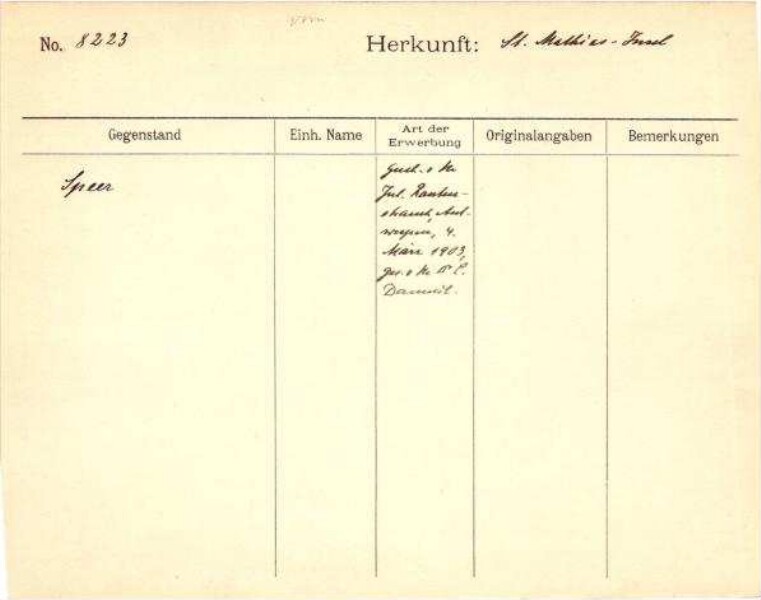 No. 8223
Herkunft: St. Mathias-Insel
Gegenstand
Einh. Name
Art der
Erwerbung
Originalangaben
Bemerkungen
Speer
Gesch. v Hr
Jul. Rauten-
strauch, Ant-
werpen, 4.
März 1903,
ges. v Hr Dr